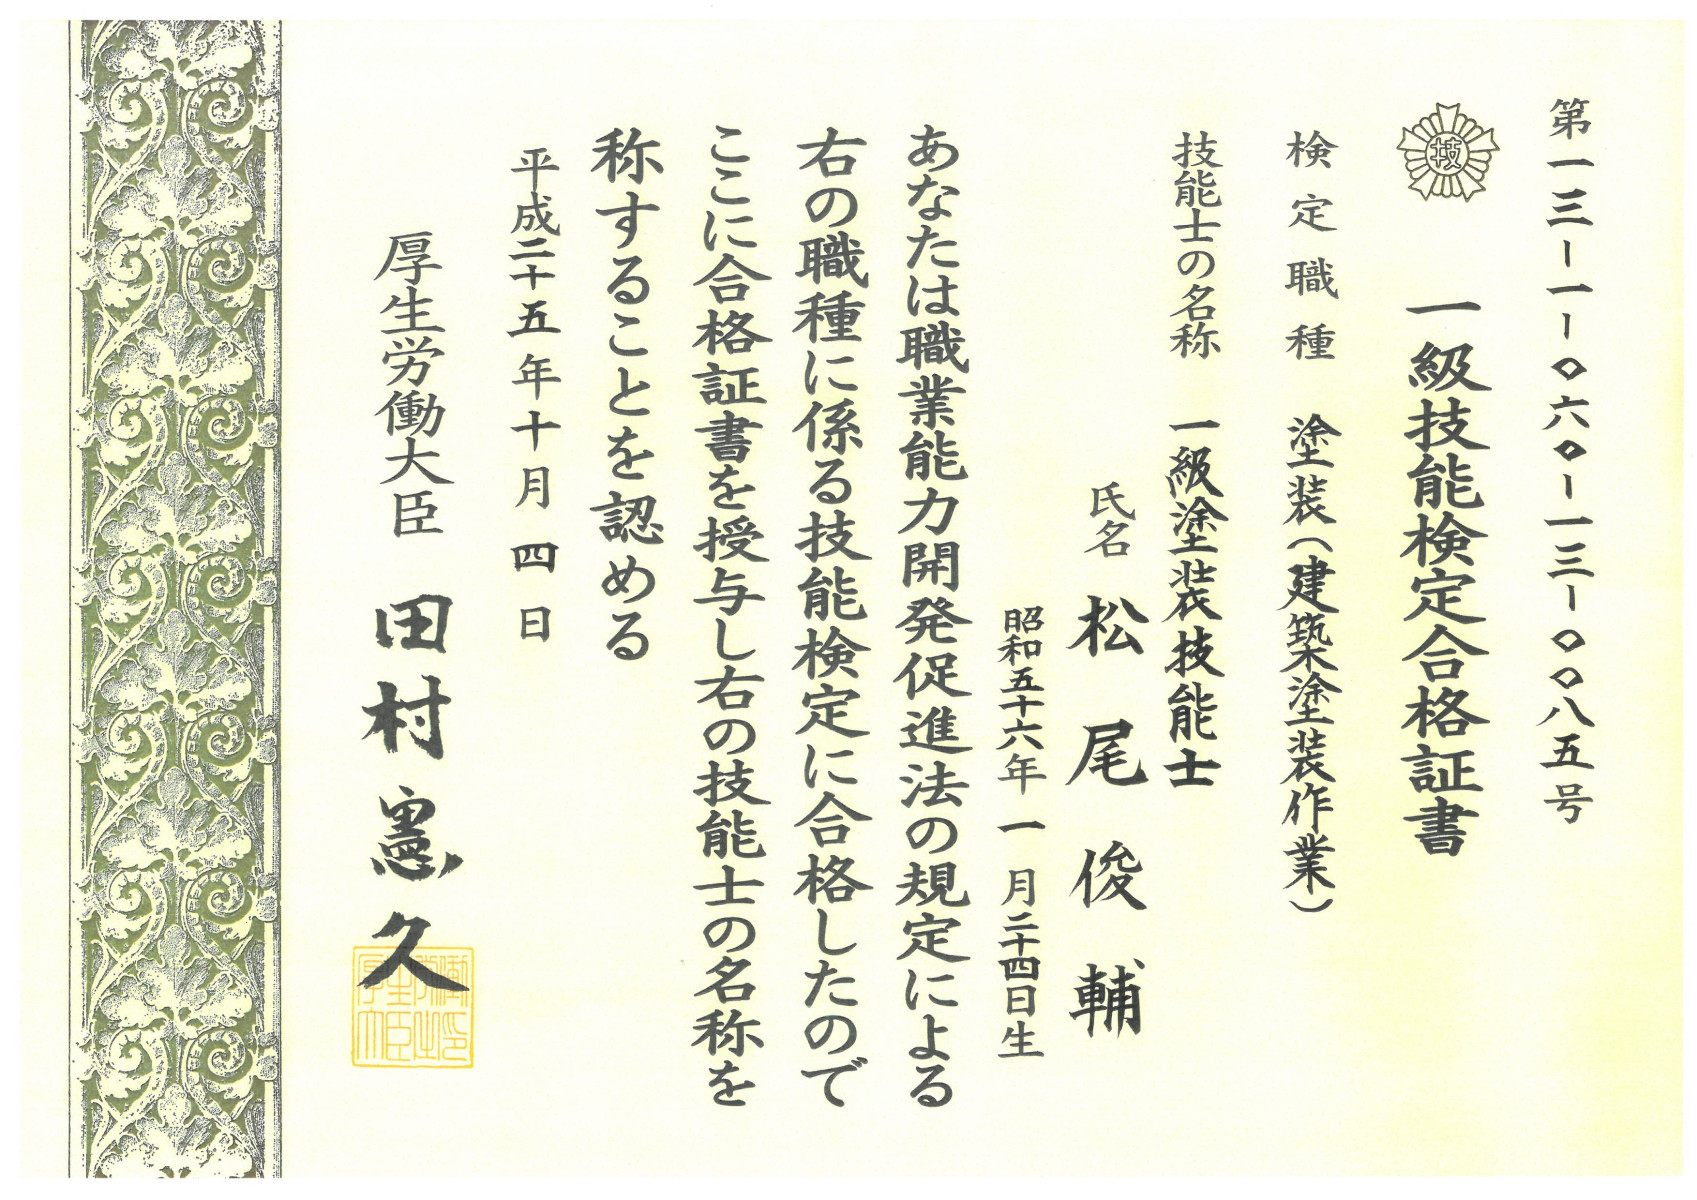 第一三-一一-〇六〇-一三-〇〇八五号
技
一級技能検定合格証書
検定職種 塗装(建築塗装作業)
技能士の名称 一級塗装技能士
氏名 松尾俊輔
昭和五十六年一月二十四日生
あなたは職業能力開発促進法の規定による
右の職種に係る技能検定に合格したので
ここに合格証書を授与し右の技能士の名称を
称することを認める
平成二十五年十月四日
厚生労働大臣 田村憲久